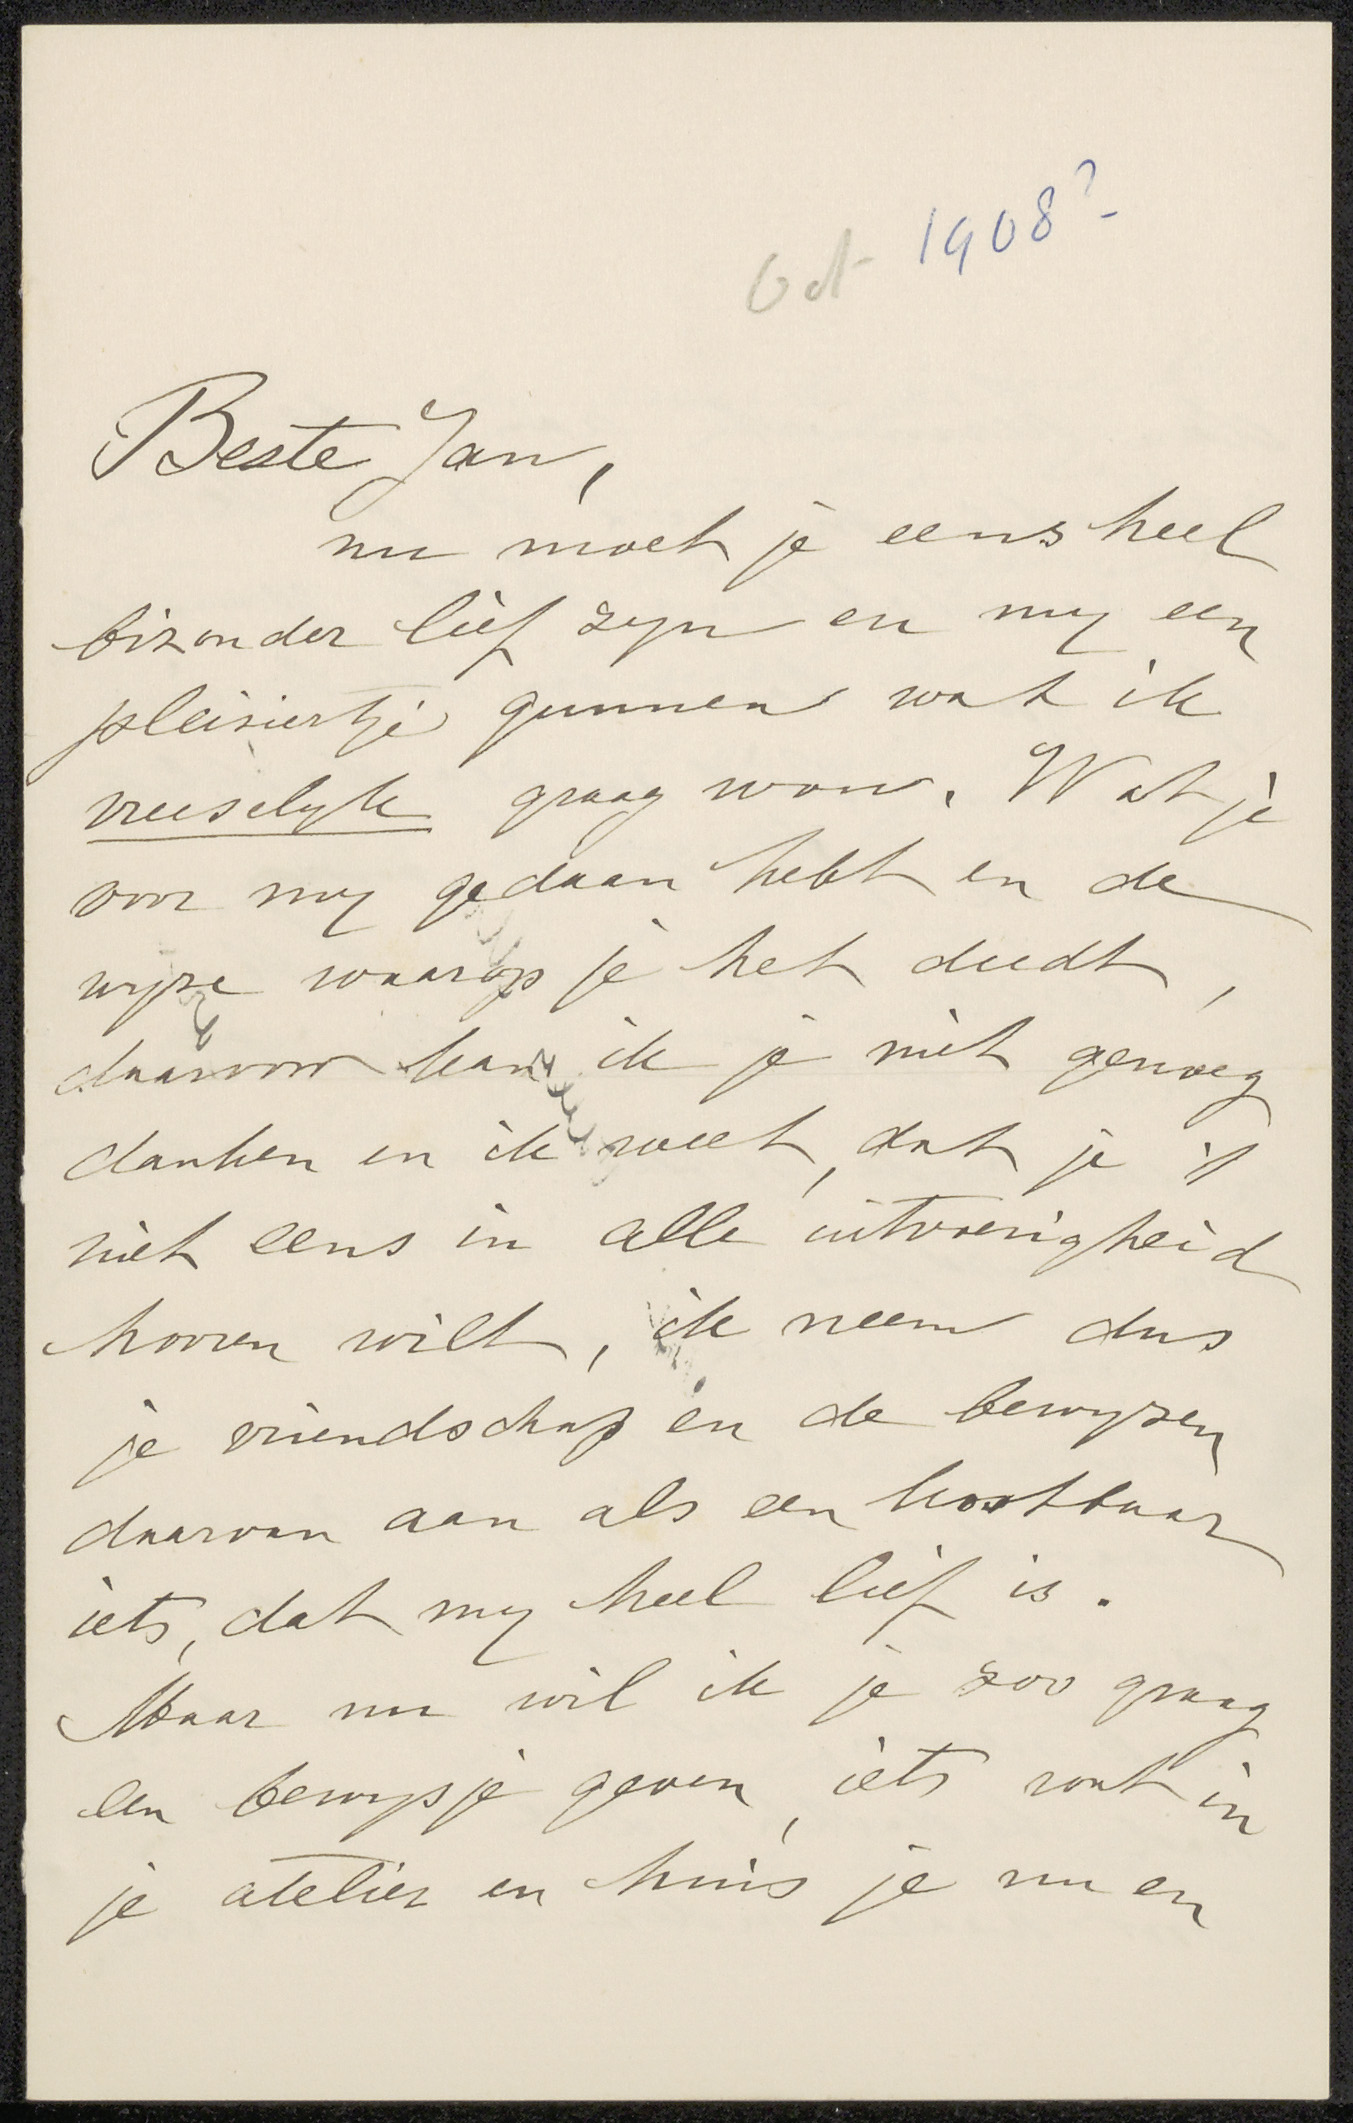 Oct 1908?
Beste Jan,
nu moet je eens heel
bizonder lief zyn en my een
pleiziertje gunnen wat ik
vreeselyk graag wou. Wat je
voor my gedaan hebt en de
wyze waarop je het deedt,
daarvoor kan ik je niet genoeg
danken en ik weet, dat je 't
niet eens in alle uitvoerigheid
hooren wilt, ik neem dus
je vriendschap en de bewyzen
daarvan aan als een kostbaar
iets, dat my heel lief is.
Maar nu wil ik je zoo graag
een bewysje geven, iets wat in
je atelier en huis je nu en